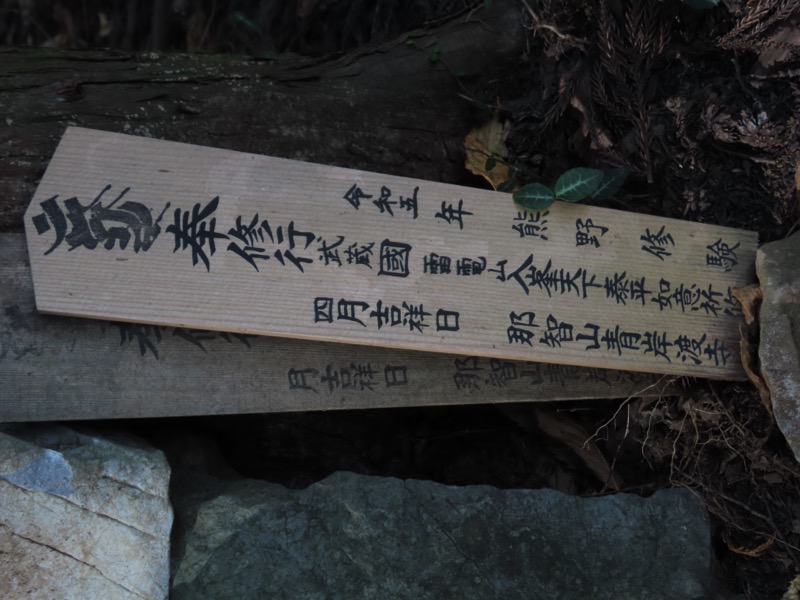 令和五年 熊野修験
奉修行武蔵國雷電山入峯天下泰平如意祈
四月吉祥日 那智山青岸渡寺
奉修行
月吉祥日 那智山青